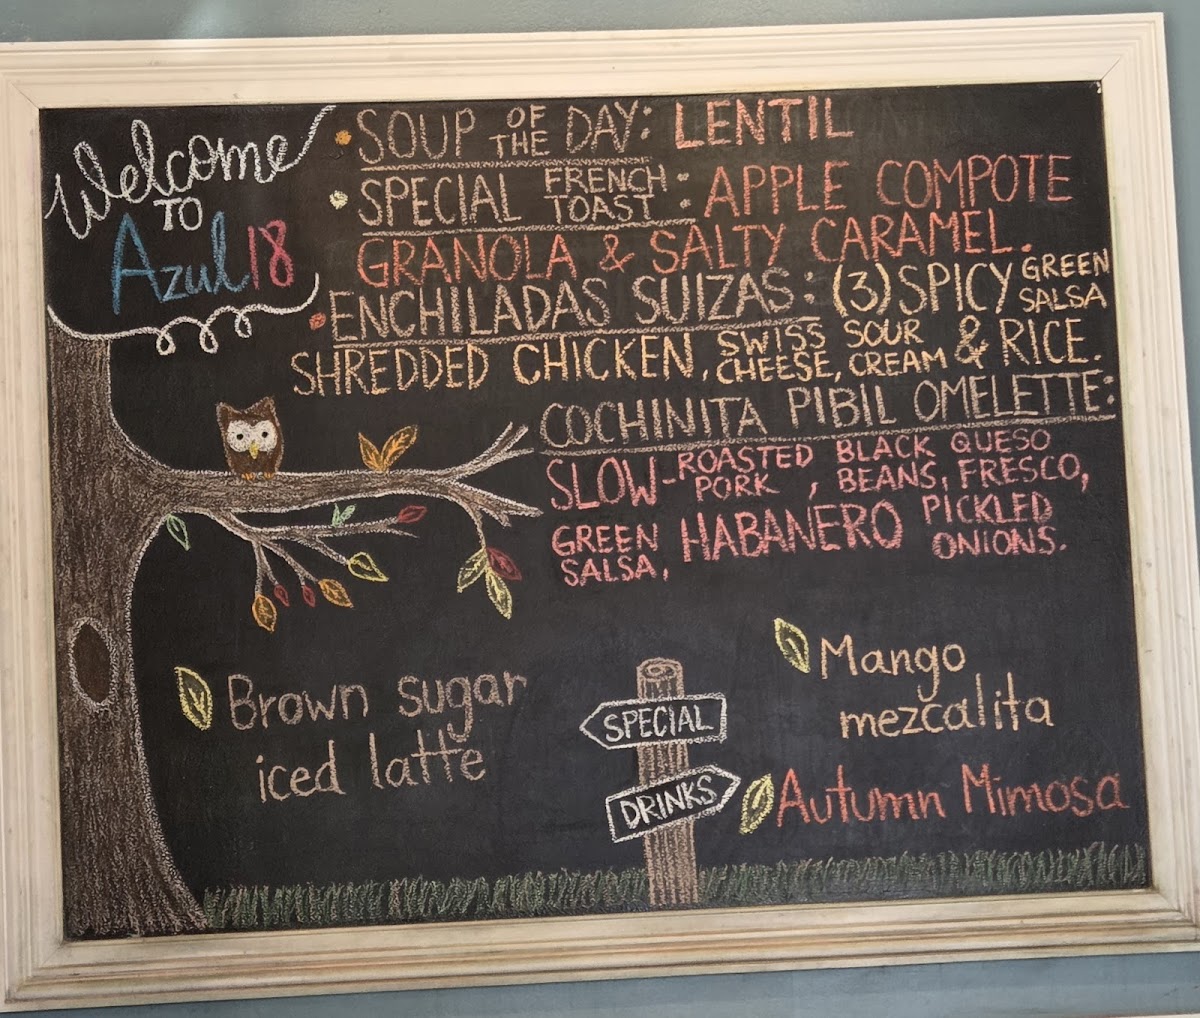 Welcome
TO
Azul18
SOUP OF THE DAY: LENTIL
SPECIAL FRENCH TOAST: APPLE COMPOTE
GRANOLA & SALTY CARAMEL.
ENCHILADAS SUIZAS: (3) SPICY GREEN SALSA
SHREDDED CHICKEN, SWISS CHEESE, SOUR CREAM & RICE.
COCHINITA PIBIL OMELETTE:
SLOW-ROASTED PORK, BLACK BEANS, QUESO FRESCO,
GREEN SALSA, HABANERO PICKLED ONIONS.
Brown sugar
iced latte
SPECIAL
DRINKS
Mango
mezcalita
Autumn Mimosa